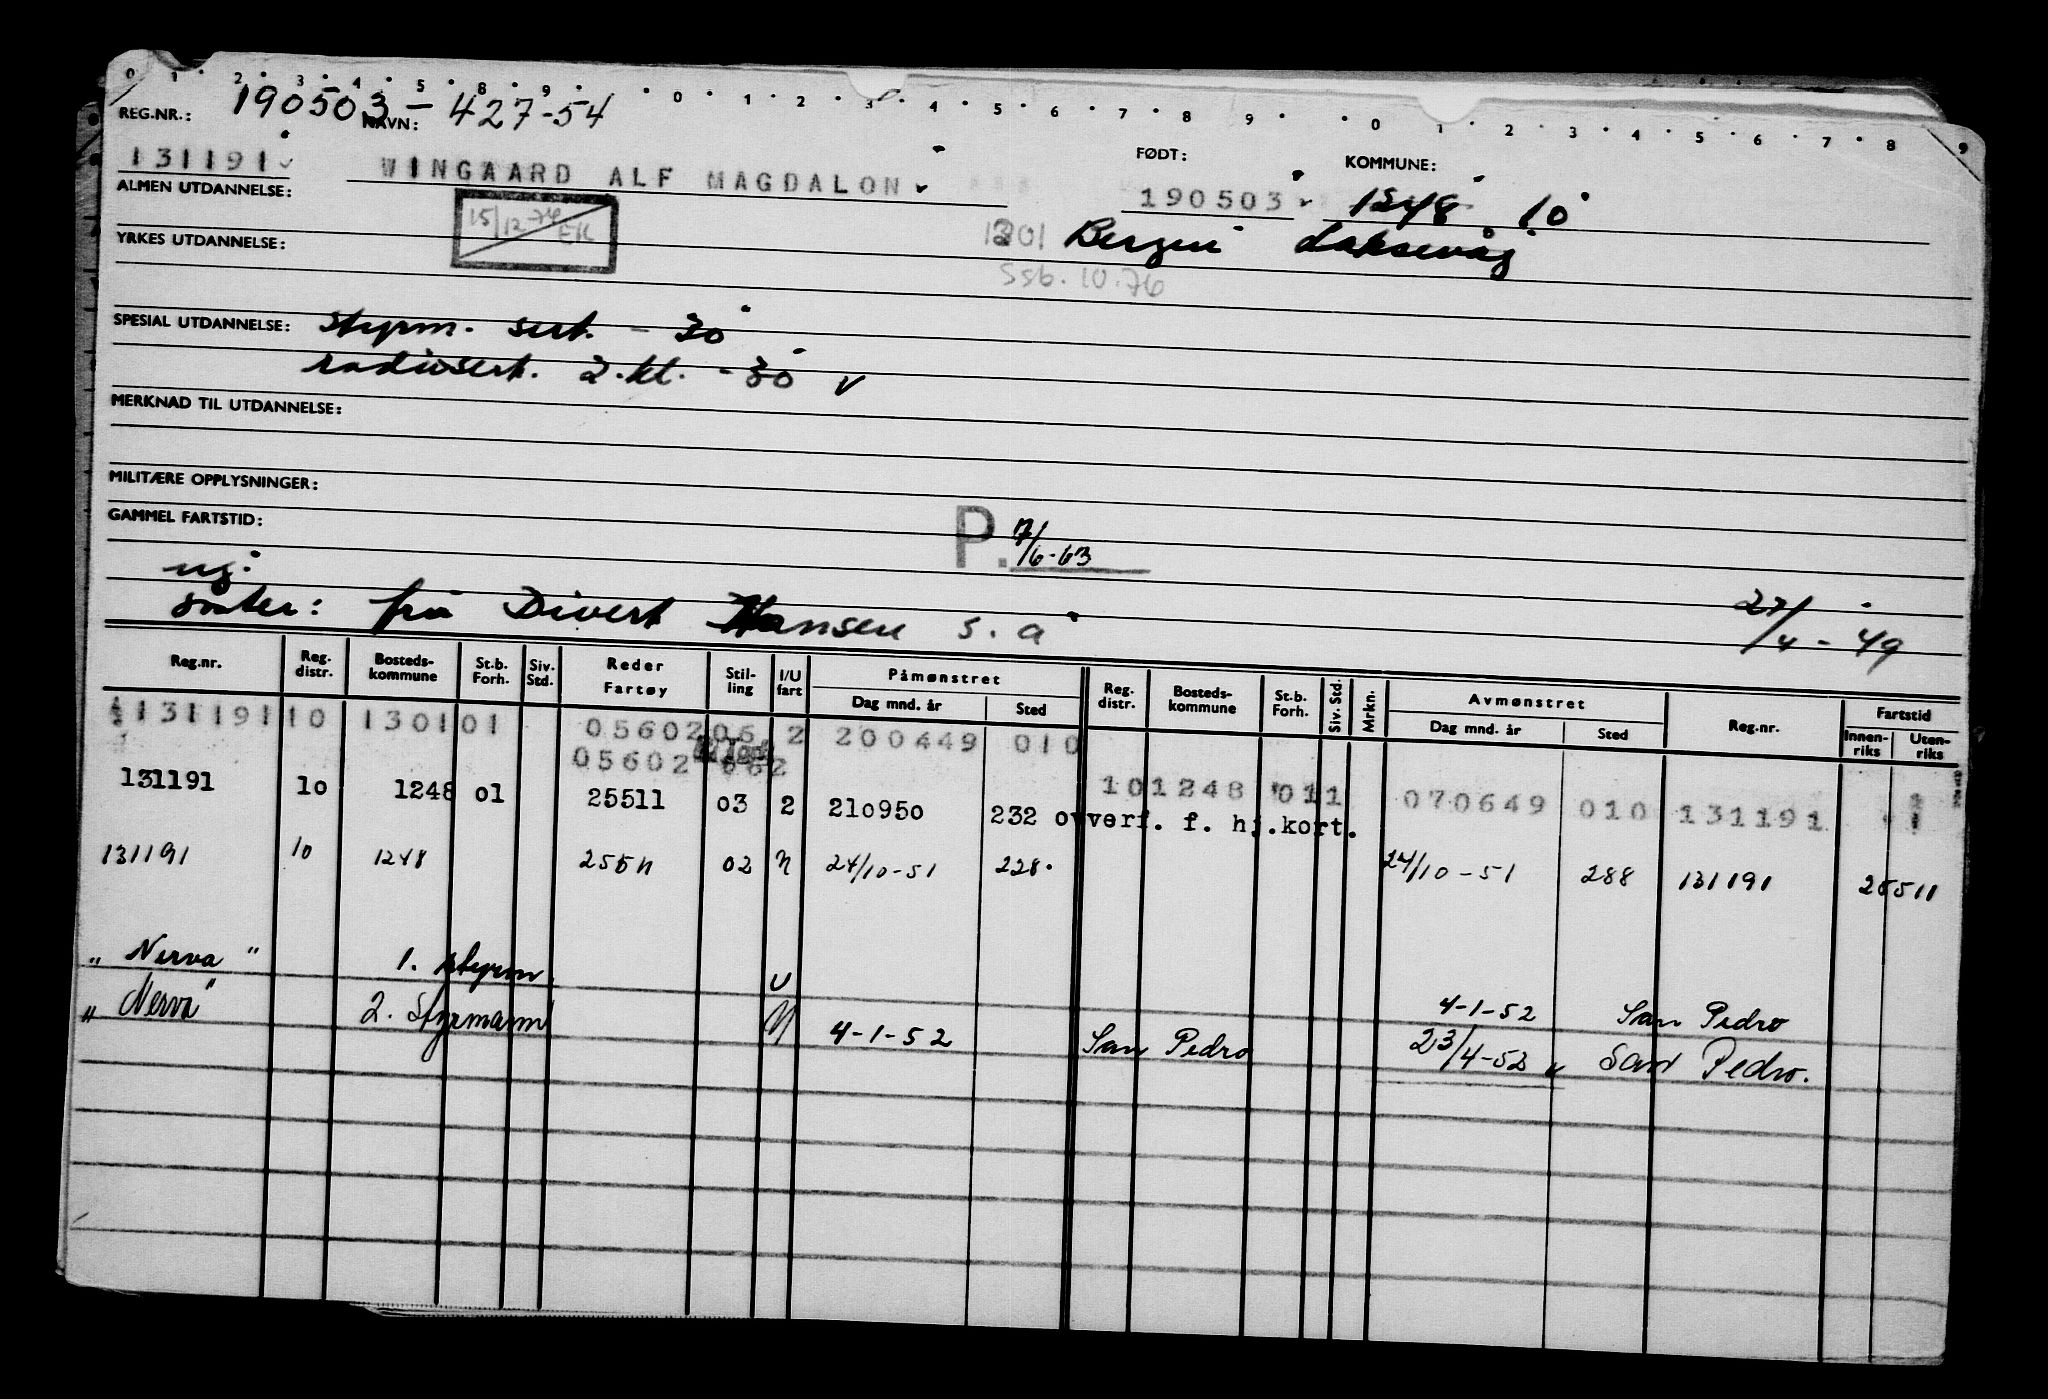 0 1 2 3 4 5 8 9 0 1 2 3 4 5 6 7 8 9 0 1 2 3 4 5 6 7 8 9
REG.NR.: 190503-427-54
NAVN: FØDT: KOMMUNE:
131191 WINGAARD ALF MAGDALON 190503 1248 10
ALMEN UTDANNELSE:
15/12-74 EK
1301 Bergen Laksevåg
YRKES UTDANNELSE:
Ssb. 10.76
SPESIAL UTDANNELSE: styrm. sert. - 30
radiosert. 2.kl. - 30 v
MERKNAD TIL UTDANNELSE:
MILITÆRE OPPLYSNINGER:
GAMMEL FARTSTID:
P. 7/6-63
ug.
søster: fru Divert Hansen s. a 27/4-49
Reg.nr. Reg. distr. Bosteds-kommune St.b. Forh. Siv. Std. Reder Fartøy Stil-ling I/U fart Påmønstret Dag mnd. år Sted Reg. distr. Bosteds-kommune St.b. Forh. Siv. Std. Mrkn. Avmønstret Dag mnd. år Sted Reg.nr. Fartstid Innen-riks Uten-riks
131191 10 1301 01 05602 06 2 200449 010
05602 062
101248 011 070649 010 131191
131191 10 1248 01 25511 03 2 210950 232 overf. f. hj.kort.
131191 10 1248 25511 02 U 24/10-51 228. 24/10-51 288 131191 25511
" Nerva " 1. styrm U 4-1-52 San Pedro
" Nerva " 2. Styrmann U 4-1-52 San Pedro 23/4-52 San Pedro.